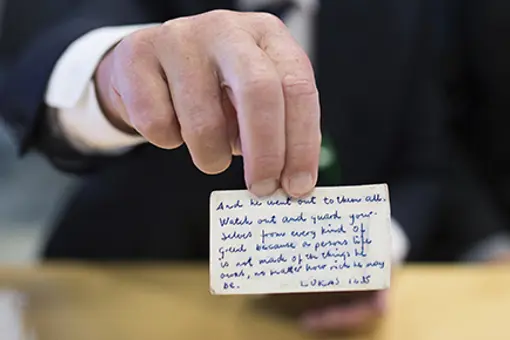 And he went out to them all.
Watch out and guard your-
selves from every kind of
greed because a persons life
is not made of the things he
owns, no matter how rich he may
be. LUKAS 12:15